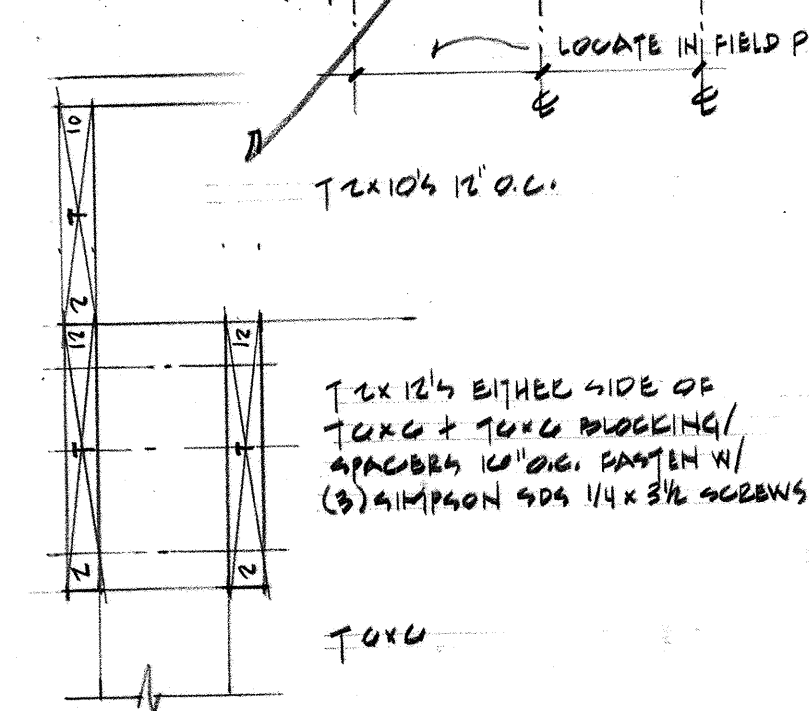 LOCATE IN FIELD P
℄ ℄
10
T
2
T 2x10's 12" O.C.
12 12
T T
2 2
T 2x12's EITHER SIDE OF
T6x6 + T6x6 BLOCKING/
SPACERS 16" O.C. FASTEN W/
(3) SIMPSON SDS 1/4 x 3 1/2 SCREWS
T 6x6